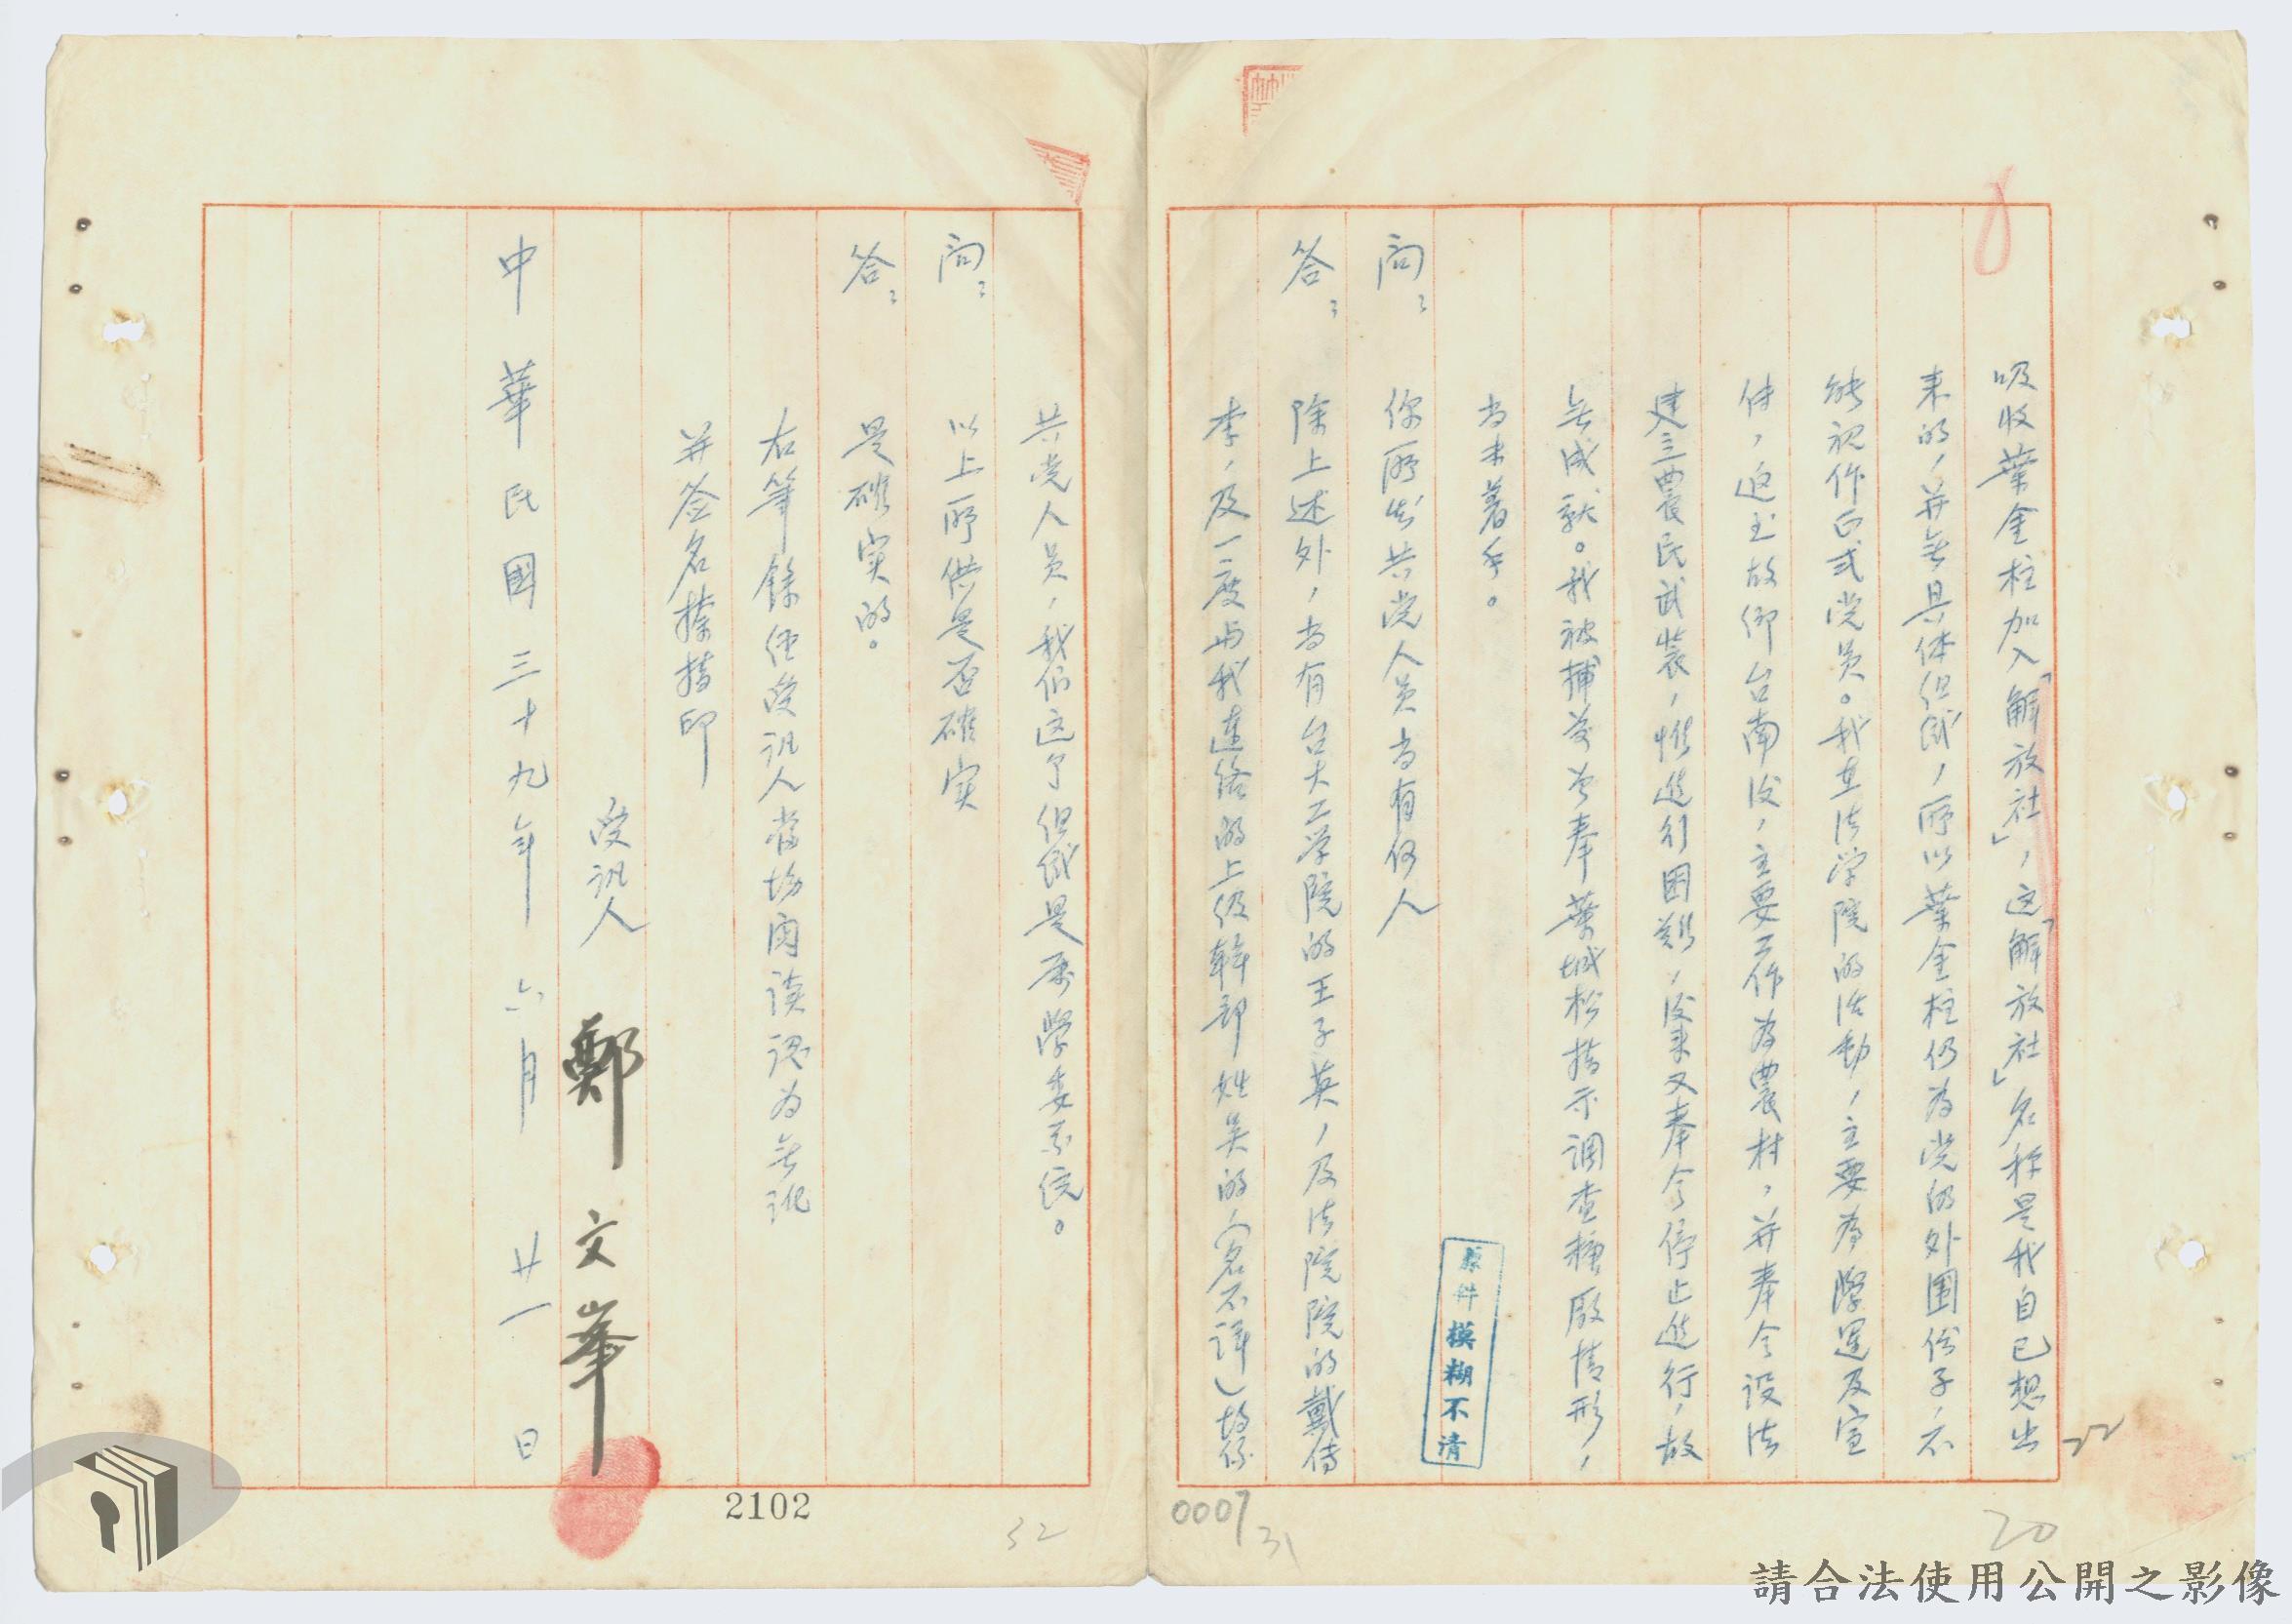 吸收葉金柱加入「解放社」，这「解放社」名称是我自己想出
来的，并無具体组织，所以葉金柱仍为党的外围份子，不
能视作正式党员。我在法学院的活動，主要为学運及宣
传，迨至故鄉台南後，主要工作为農村，并奉令設法
建立農民武装，惟進行困難，後来又奉令停止進行，故
無成就。我被捕前曾奉葉城松指示調查糖廠情形，
尚未着手。
問： 你所知共党人员尚有何人
答： 除上述外，尚有台大工学院的王子英，及法院院的戴侍
李，及一度与我連络的上级幹部姓吴的，（名不詳）均係
共党人员，我们这个组织是属学委系统。
問： 以上所供是否確实
答： 是確实的。
右筆錄经受訊人當場閱读認为無訛
并签名捺指印
受訊人 鄭文峯
中華民國三十九年六月廿一日
原件模糊不清
22
20
0007
31
32
2102
請合法使用公開之影像